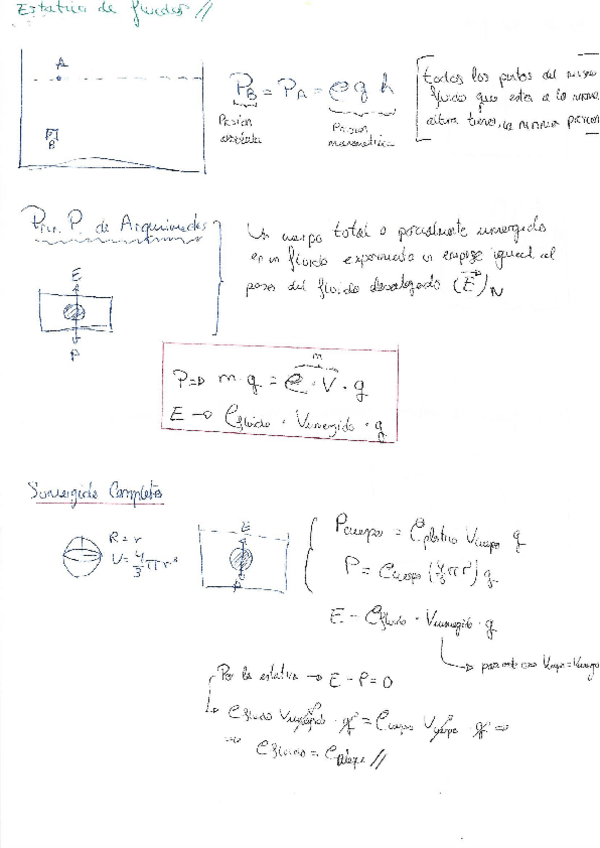 Estática de fluidos //
A
B
P_B = P_A = ρ g h
Presión absoluta
Presion manometrica
todos los puntos del mismo
fluido que esten a la misma
altura tienen la misma presion
Prin. P. de Arquimedes
E
P
Un cuerpo total o parcialmente sumergido
en un fluido experimenta un empuje igual al
peso del fluido desalojado (E)_N
m
P => m·g = ρ·V·g
E → ρfluido · Vsumergido · g
Sumergido Completo
R = r
V = 4/3 π r³
E
P
Pcuerpo = ρ Vcuerpo g
P = ρcuerpo (4/3 π r³) g
E - ρfluido · Vsumergido · g
para este caso Vcuerpo = Vsumergido
Por la estatica → E - P = 0
ρfluido Vsumergido · g = ρcuerpo Vcuerpo · g =>
=> ρfluido =